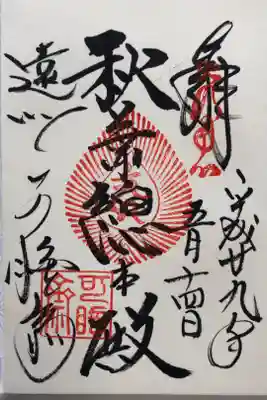 奉拝
平成廿九年
五月十四日
秋葉總本殿
遠州
可睡齋